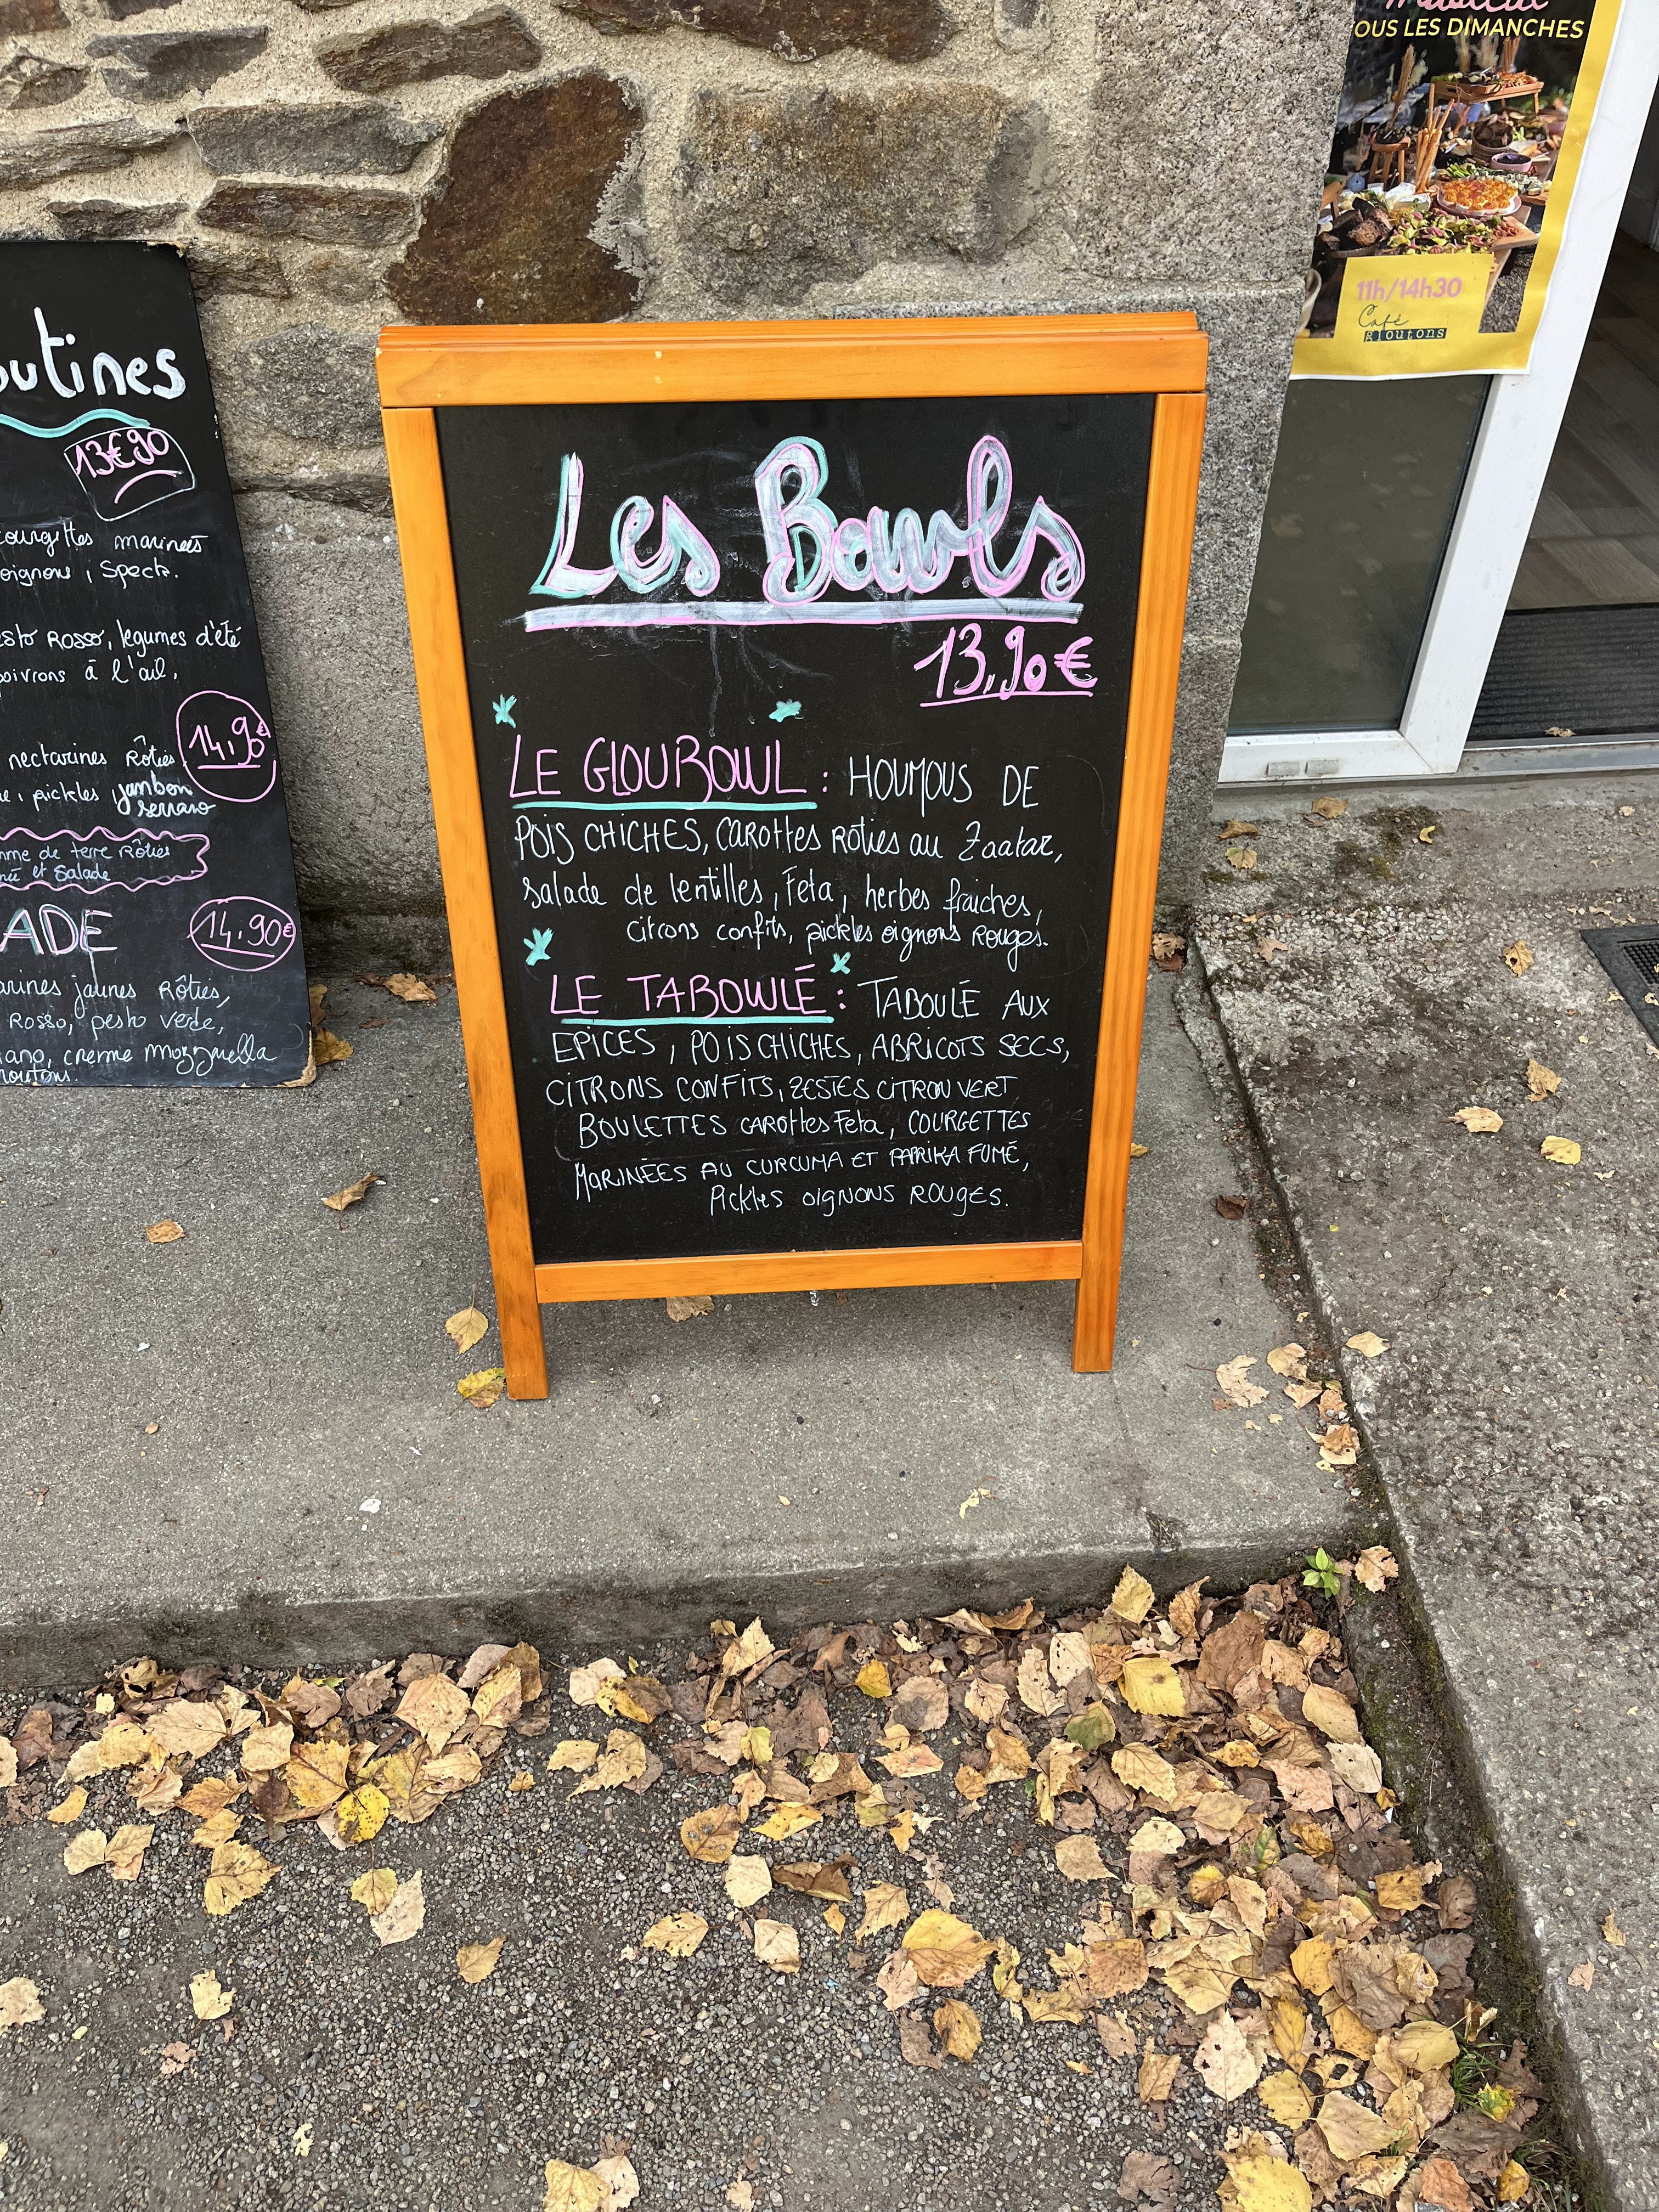 outines
13€90
courgettes marinées
oignons, Speck.
esto Rosso, légumes d'été
poivrons à l'ail,
14,90€
nectarines Rôties
pickles jambon
serrano
mme de terre Rôties
et Salade
ADE
14.90€
arines jaunes Rôties,
Rosso, pesto verde,
iano, creme mozzarella
outons.
Les Bowls
13,90€
LE GLOUBOWL : HOUMOUS DE
POIS CHICHES, CAROTTES RÔTIES au Zaatar,
Salade de lentilles, Feta, herbes fraiches,
citrons confits, pickles oignons Rouges.
LE TABOWLÉ : TABOULÉ AUX
EPICES, POIS CHICHES, ABRICOTS SECS,
CITRONS CONFITS, ZESTES CITRON VERT
BOULETTES CAROTTES Feta, COURGETTES
MARINÉES AU CURCUMA ET PAPRIKA FUMÉ,
Pickles OIGNONS ROUGES.
musical
OUS LES DIMANCHES
11h/14h30
Café
gloutons